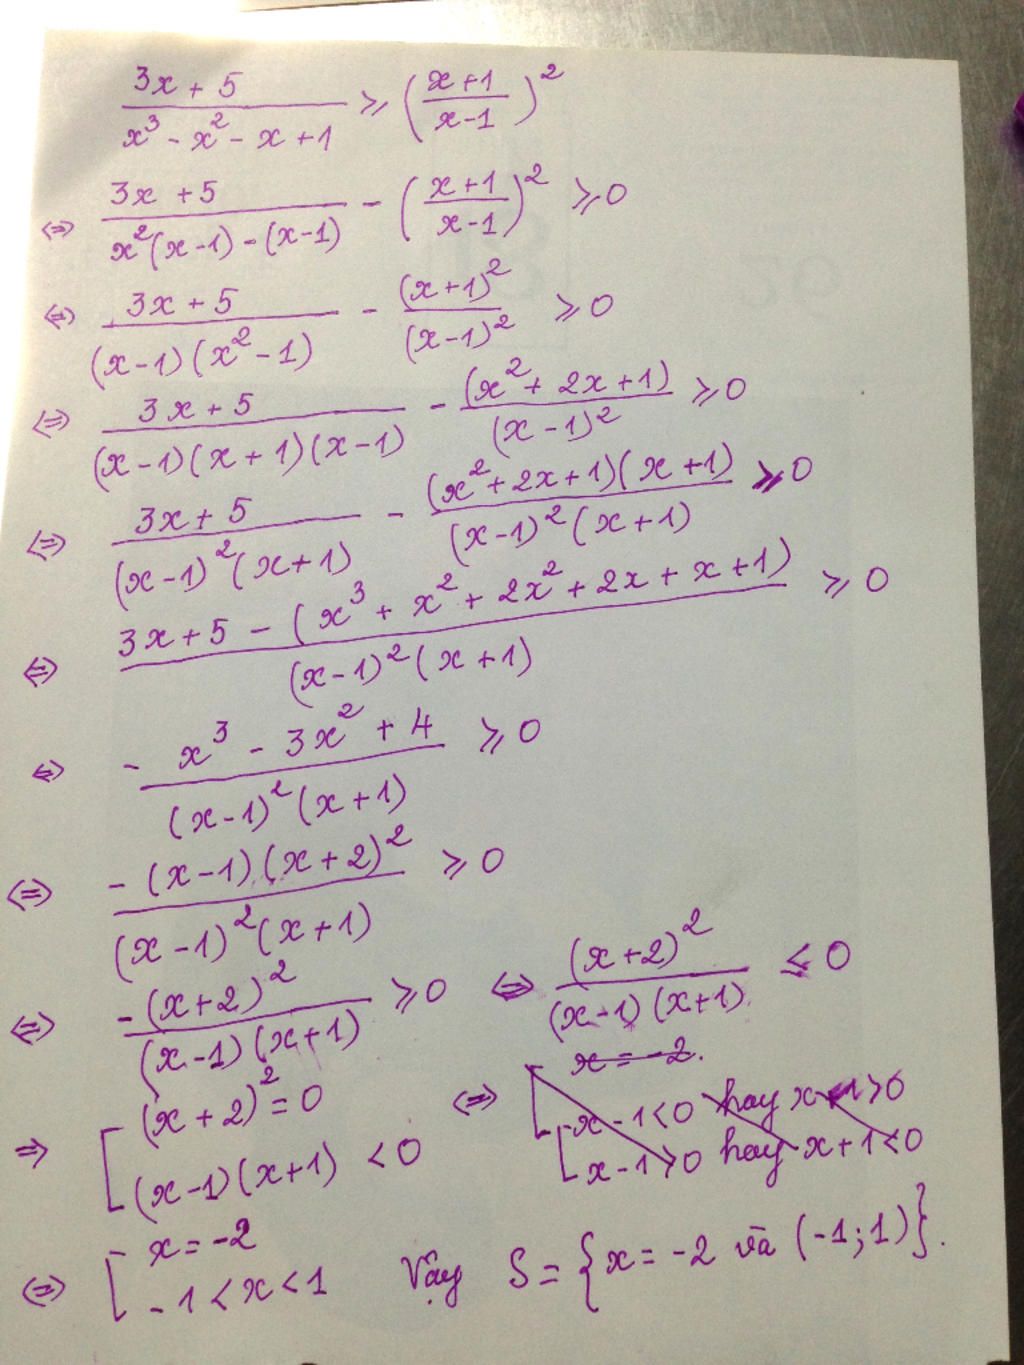 (3x + 5)/(x³ - x² - x + 1) ≥ ((x+1)/(x-1))²
⇔ (3x + 5)/(x²(x-1) - (x-1)) - ((x+1)/(x-1))² ≥ 0
⇔ (3x + 5)/((x-1)(x² - 1)) - (x+1)²/(x-1)² ≥ 0
⇔ (3x + 5)/((x-1)(x+1)(x-1)) - (x² + 2x + 1)/(x-1)² ≥ 0
⇔ (3x + 5)/((x-1)²(x+1)) - (x² + 2x + 1)(x+1)/((x-1)²(x+1)) ≥ 0
⇔ (3x + 5 - (x³ + x² + 2x² + 2x + x + 1))/((x-1)²(x+1)) ≥ 0
⇔ (- x³ - 3x² + 4)/((x-1)²(x+1)) ≥ 0
⇔ -(x-1)(x+2)²/((x-1)²(x+1)) ≥ 0
⇔ -(x+2)²/((x-1)(x+1)) ≥ 0 ⇔ (x+2)²/((x-1)(x+1)) ≤ 0
⇒ [ (x+2)² = 0
(x-1)(x+1) < 0
⇔ [ x = -2.
x - 1 < 0 hay x + 1 > 0
[ x - 1 > 0 hay x + 1 < 0
⇔ [ x = -2
-1 < x < 1
Vậy S = {x = -2 và (-1; 1)}.